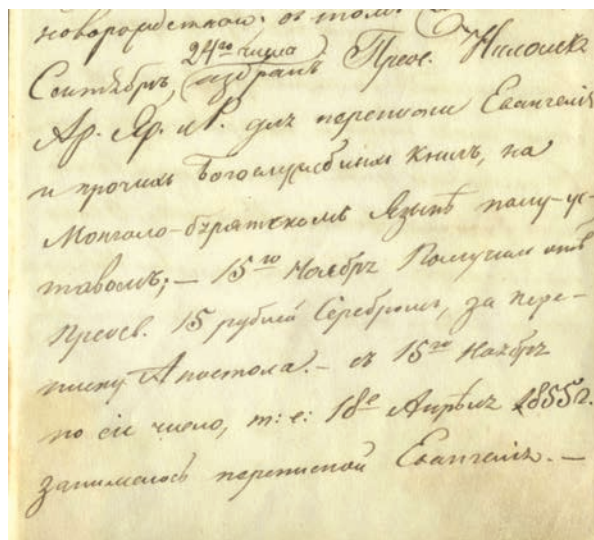 новорожденной. въ томъ
24го числа
Сентябрѣ, избранъ Преос. Ниломъ
Ар. Яр. и Р. для переписки Евангелія
и прочихъ Богослужебныхъ книгъ, на
Монголо-бурятскомъ Языкѣ полу-ус-
тавомъ; — 15го Ноября Получилъ отъ
Преосв. 15 рублей Серебромъ, за пере-
писку Апостола. — съ 15го Ноября
по сіе число, т: е: 18е Апрѣля 1855 г.
занимаюсь перепиской Евангелія. —